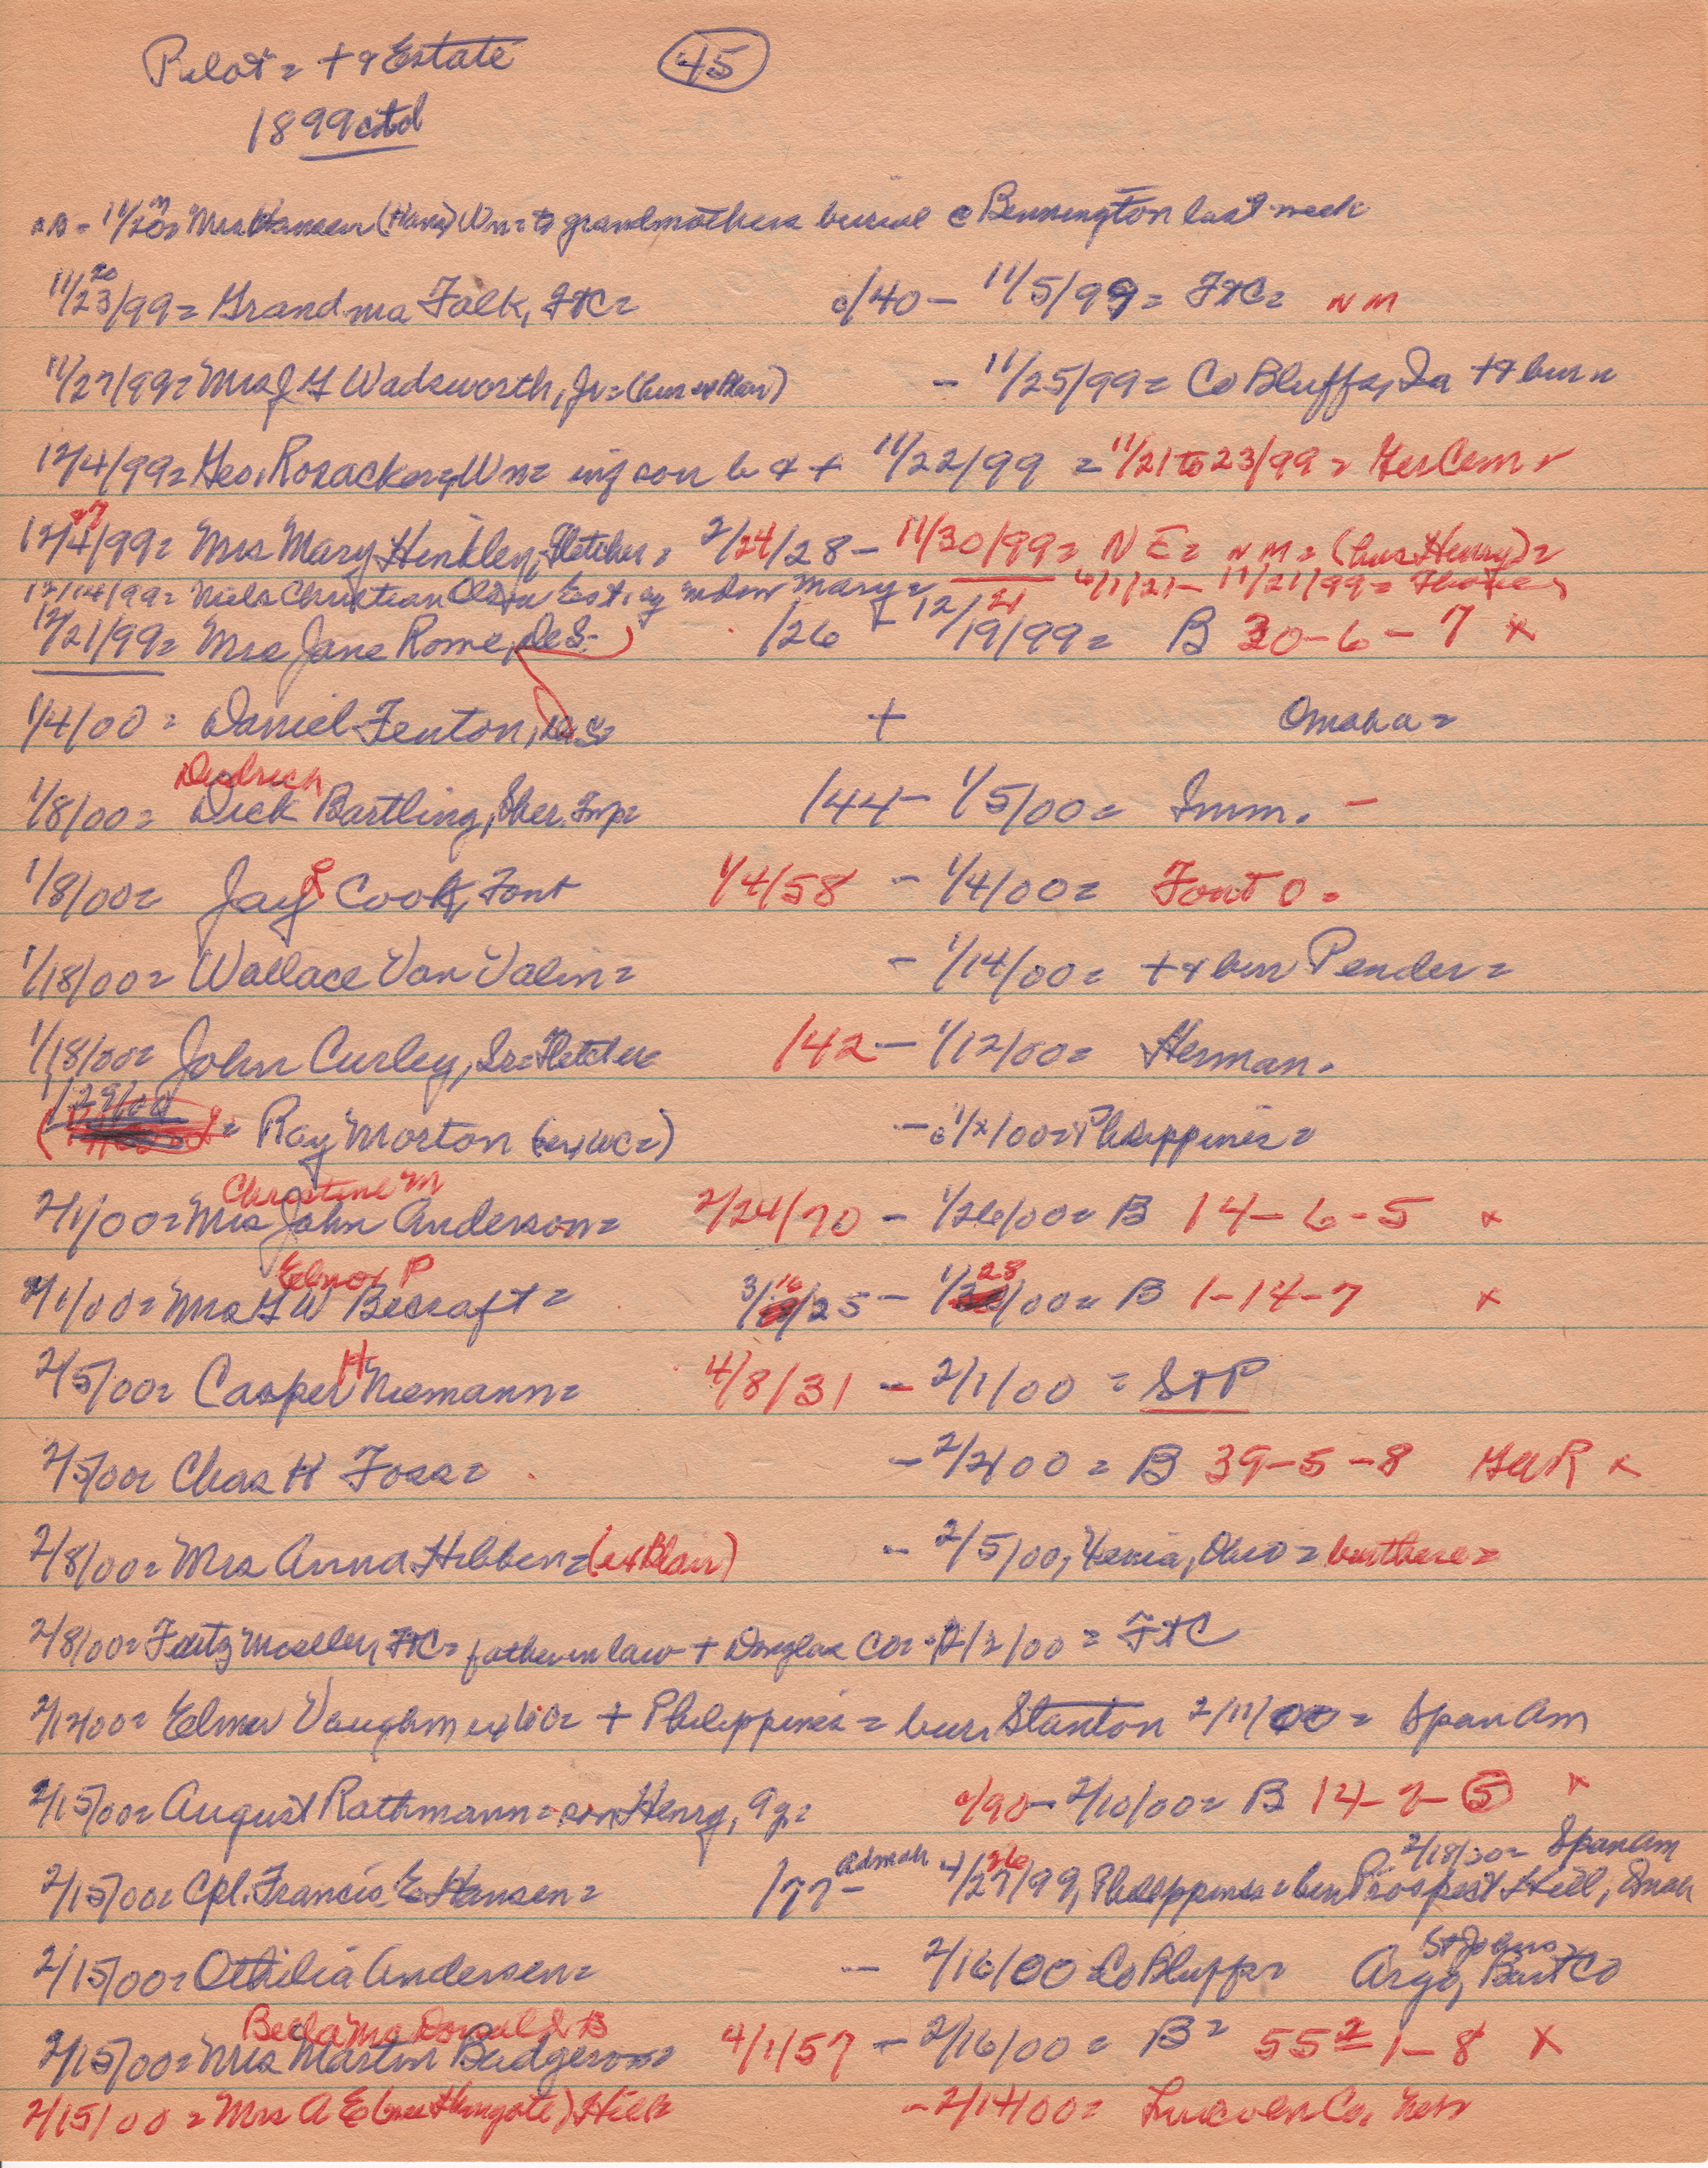 Pilot = + & Estate 45
1899 ctd
11/20 = Mrs Hansen (Hans) Wn = to grandmothers burial @ Bennington last week
20
11/23/99 = Grandma Falk, FtC = c/40 - 11/5/99 = FtC = NM
11/27/99 = Mrs J G Wadsworth, Jr = (bur ex Blair) - 11/25/99 = Co Bluffs, Ia + & bur =
12/4/99 = Geo. Rosacker, Wn = inf son b & + 11/22/99 = 11/21 to 23/99 = Ger Cem =
27
12/4/99 = Mrs Mary Hinkley, Fletcher = 2/24/28 - 11/30/99 = NE = NM = (hus Henry) =
12/14/99 = Niels Christian Olsen Est, by widow Mary = 6/1/21 - 11/21/99 =
12/21/99 = Mrs Jane Rome, DeS. /26 - 12/19/99 = B 30-6-7 x
21
1/4/00 = Daniel Fenton, DeS = + Omaha =
Diedrich
1/8/00 = Dick Bartling, Sher. Imp = /44 - 1/5/00 = Imm. -
1/8/00 = Jay L Cook, Font 1/4/58 - 1/4/00 = Font O =
1/18/00 = Wallace Van Valin = - 1/14/00 = + & bur Pender =
1/18/00 = John Curley, Sr = Fletcher = /42 - 1/12/00 = Herman.
1/29/00 = Ray Morton (ex WC =) - c 1/x/00 = Philippines =
Christine M
2/1/00 = Mrs John Anderson = 2/24/70 - 1/26/00 = B 14-6-5 x
Elnor P
2/1/00 = Mrs G W Becraft = 3/16/25 - 1/28/00 = B 1-14-7 x
2/5/00 = Casper H Niemann = 4/8/31 - 2/1/00 = StP
2/5/00 = Chas H Foss = - 2/2/00 = B 39-5-8 GAR x
2/8/00 = Mrs Anna Hibben = (ex Blair) - 2/5/00, Xenia, Ohio = bur there =
2/8/00 = Fritz Moeller, FtC = father in law + Douglas Co = 2/2/00 = FtC
2/12/00 = Elmer Vaughn ex WC = + Philippines = bur. Stanton 2/11/00 = Span Am
2/15/00 = August Rathmann = son Henry, 9 g = c/90 - 2/10/00 = B 14-2-5 x
2/18/00 = Span Am
2/15/00 = Cpl. Francis E Hansen = /77 - Admah 4/27/99, Philippines = bur Prospect Hill, Omah
26
St Johns
2/15/00 = Othilia Andersen = - 2/16/00 Co Bluffs = Argo, Burt Co
Bella McDonald B
2/15/00 = Mrs Martin Badgerow = 4/1/57 - 2/16/00 = B = 55 1/2 - 1-8 x
2/15/00 = Mrs A E (nee Hungate) Hill - 2/14/00 = Lincoln Co, Neb